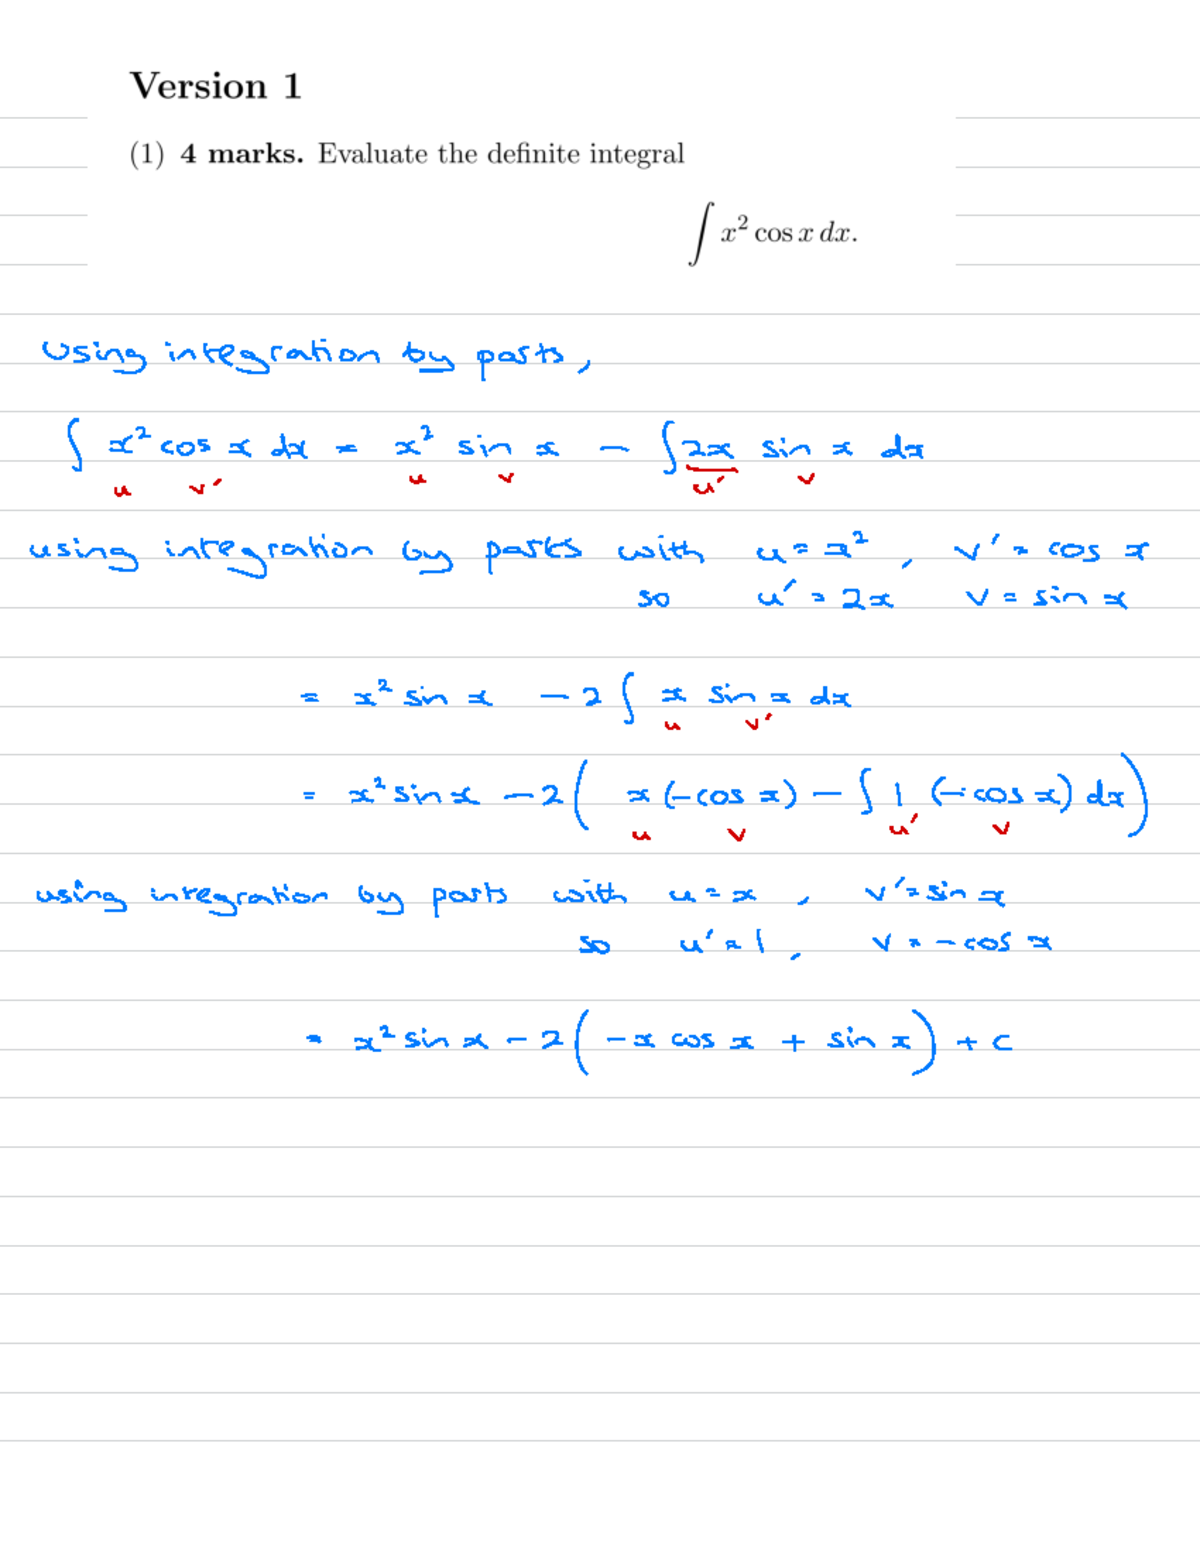 Version 1
(1) 4 marks. Evaluate the definite integral
∫ x² cos x dx.
Using integration by parts,
∫ x² cos x dx = x² sin x − ∫ 2x sin x dx
u v′ u v u′ v
using integration by parts with u = x², v′ = cos x
so u′ = 2x v = sin x
= x² sin x − 2 ∫ x sin x dx
u v′
= x² sin x − 2 ( x (−cos x) − ∫ 1 (−cos x) dx )
u v u′ v
using integration by parts with u = x, v′ = sin x
so u′ = 1, v = −cos x
= x² sin x − 2 ( −x cos x + sin x ) + c